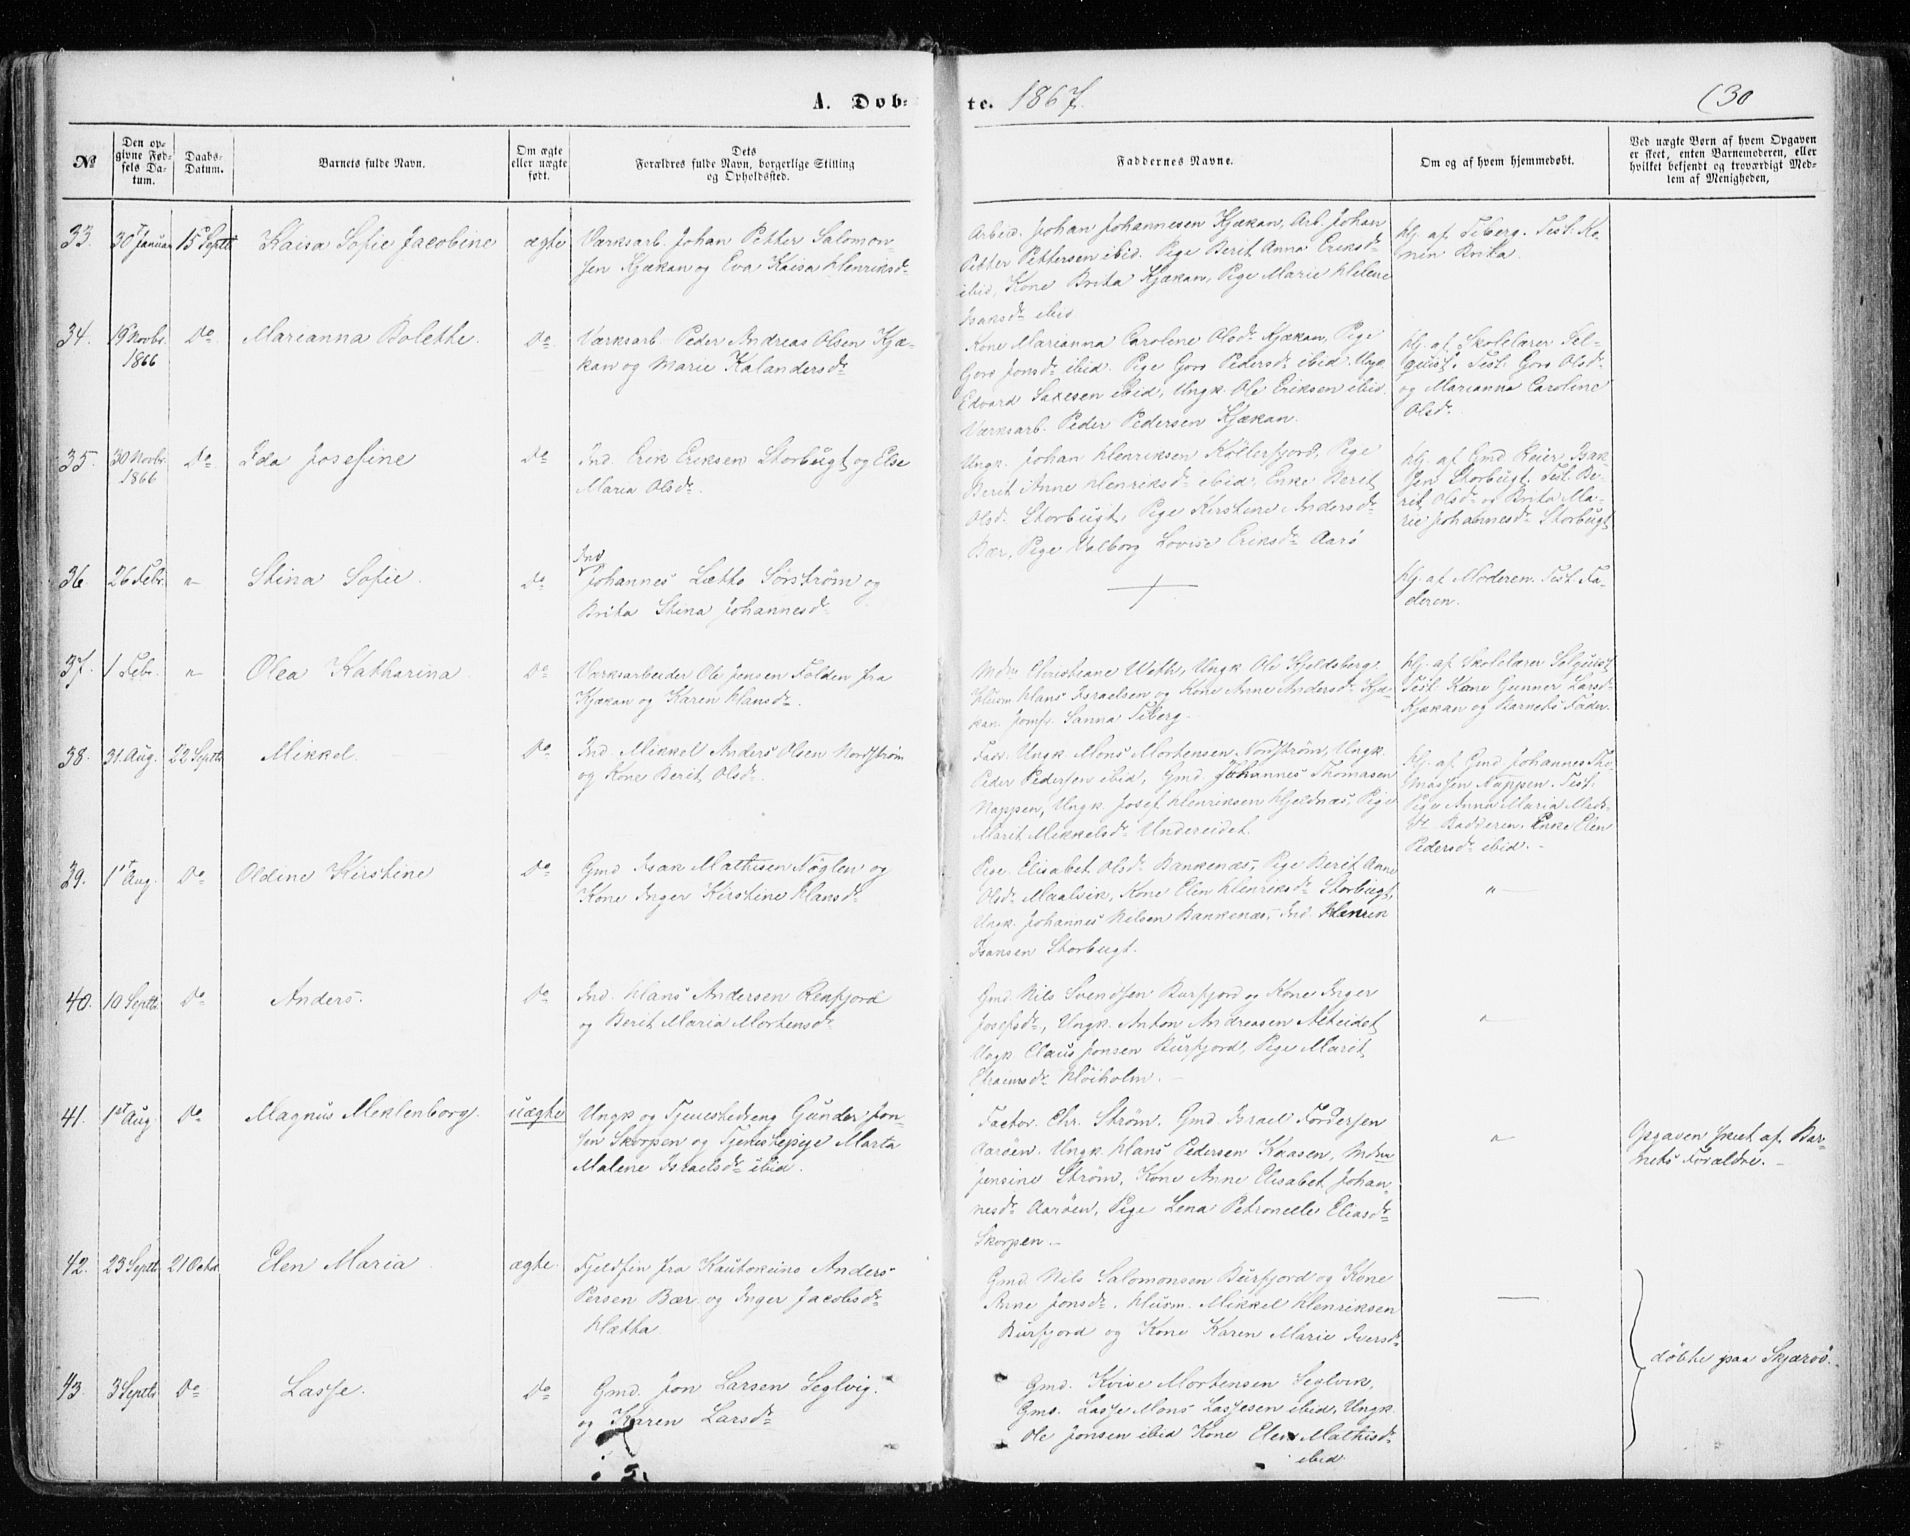 A. Døb-
te. 1867.
(30
No
Den op-
givne Fød-
sels Da-
tum.
Daabs-
Datum.
Barnets fulde Navn.
Om ægte
eller uægte
født.
Dets
Forældres fulde Navn, borgerlige Stilling
og Opholdssted.
Faddernes Navne.
Om og af hvem hjemmedøbt.
Ved uægte Børn af hvem Opgaven
er skeet, enten Barnemoderen, eller
hvilket bekjendt og troværdigt Med-
lem af Menigheden,
33. 30 Januar 15 Septbr Kaisa Sofie Jacobine ægte
Værksarb. Johan Petter Salomon-
sen Kjækan og Eva Kaisa Henriksdr
Arbeid. Johan Johannesen Kjækan, Arb. Johan
Petter Pettersen ibid. Pige Berit Anna Eriksdr
ibid, Kone Brita Kjækan, Pige Marie Helene
Isaksdr ibid
hj. af Tiberg. Test. Ko-
nen Brita.
34. 19 Novbr. 1866 Do Marianna Bolette. Do
Værksarb. Peder Andreas Olsen Kjæ-
kan og Marie Kalandersdr
Kone Marianna Carolene Olsdr Kjækan, Pige
Gors Jonsdr ibid. Pige Gors Pedersdr ibid. Ungk.
Edvard Saxesen ibid, Ungk. Ole Eriksen ibid.
Værksarb. Peder Pedersen Kjækan.
hj. af Skolelærer Sel-
quist. Test. Gors Olsdr
og Marianna Caroline
Olsdr.
35. 30 Novbr. 1866 Do Ida Josefine Do
Ind. Erik Eriksen Storbugt og Else
Maria Olsdr.
Ungk. Johan Henriksen Kollerfjord, Pige
Berit Anne Henriksdr ibid, Enke Berit
Olsd. Storbugt, Pige Kirstine Andersdr
Bær, Pige Valborg Lovise Eriksdr Aarö
hj. af Gmd Reier Isak-
sen Storbugt. Test. Be-
rit Olsdr og Brita Ma-
rie Johannesdr Storbugt
36. 26 Febr. " Stina Sofie. Do
Ind
Johannes Lætto Sörström og
Brita Stina Johannesdr
hj. af Moderen. Test. Fa-
deren.
37. 1 Febr. " Olea Katharina Do
Værksarbeider Ole Jensen Folden fra
Kjækan og Karen Hansdr.
Mdm Christiane Weth, Ungk Ole Kjeldsberg.
Husm Hans Israelsen og Kone Anne Andersdr Kjæ-
kan. Jomfr. Sanna Tiberg.
hj. af Skolelærer Selquist
Test. Kone Gunner Larsdr
Kjækan og Barnets Fader.
38. 31 Aug. 22 Septbr Mikkel. Do
Ind. Mikkel Anders Olsen Nordstrøm
og Kone Berit Olsdr.
Fad. Ungk. Mons Mortensen Nordstrøm, Ungk.
Peder Pedersen ibid, Gmd Johannes Thomasen
Nappen, Ungk. Josef Henriksen Hjeldnæs, Pige
Marit Mikkelsdr Undereidet.
hj. af Gmd Johannes Tho-
massen Nuppen. Test.
Pige Anna Maria Mads-
dr Badderen. Enke Elen
Pedersdr ibid.
39. 1st Aug. Do Oldine Kirstine Do
Gmd Isak Mathisen Nöglen og
Kone Inger Kirstine Hansdr
Pige Elisabet Olsdr Bankenæs, Pige Berit Anne
Olsdr Maalvik, Kone Elen Henriksdr Storbugt,
Ungk. Johannes Nilsen Bankenæs, Ind. Henrik
Isansen Storbugt.
"
40. 10 Septbr. Do Anders. Do
Ind. Hans Andersen Renfjord
og Berit Maria Mortensdr
Gmd. Nils Svendsen Burfjord og Kone Inger
Josefsdr, Ungk. Anton Andreasen Alteidet
Ungk. Claus Jonsen Burfjord, Pige Marit
Efraimsdr Höiholm.
"
41. 1st Aug. Do Magnus Meklenborg. uægte
Ungk og Tjenestedreng Gunder Jon-
sen Skorpen og Tjenestepige Marta
Malene Israelsdr ibid.
Factor. Chr. Ström. Gmd. Israel Fordersen
Aaröen. Ungk Hans Pedersen Kaasen, Mdm
Jensine Ström, Kone Anne Elisabet Johan-
nesdr Aaröen, Pige Lena Petronelle Eliasdr
Skorpen.
"
Opgaven skeet af Bar-
nets Forældre.
42. 23 Septbr 21 Octbr Elen Maria. ægte.
Fjeldfin fra Kautokeino Anders
Persen Bær og Inger Jacobsdr
Hætta
Gmd. Nils Salomonsen Burfjord og Kone
Anne Jonsdr. Husm. Mikkel Henriksen
Burfjord og Kone Karen Marie Iversdr
döbte paa Skjærvö.
43. 3 Septbr Do Lasse. Do
Gmd. Jon Larsen Seglvig.
og Karen Larsdr
Gmd. Kvive Mortensen Seglvik,
Gmd. Lasse Mons Lassesen ibid, Ungk.
Ole Jonsen ibid Kone Elen Mathisdr
ibid